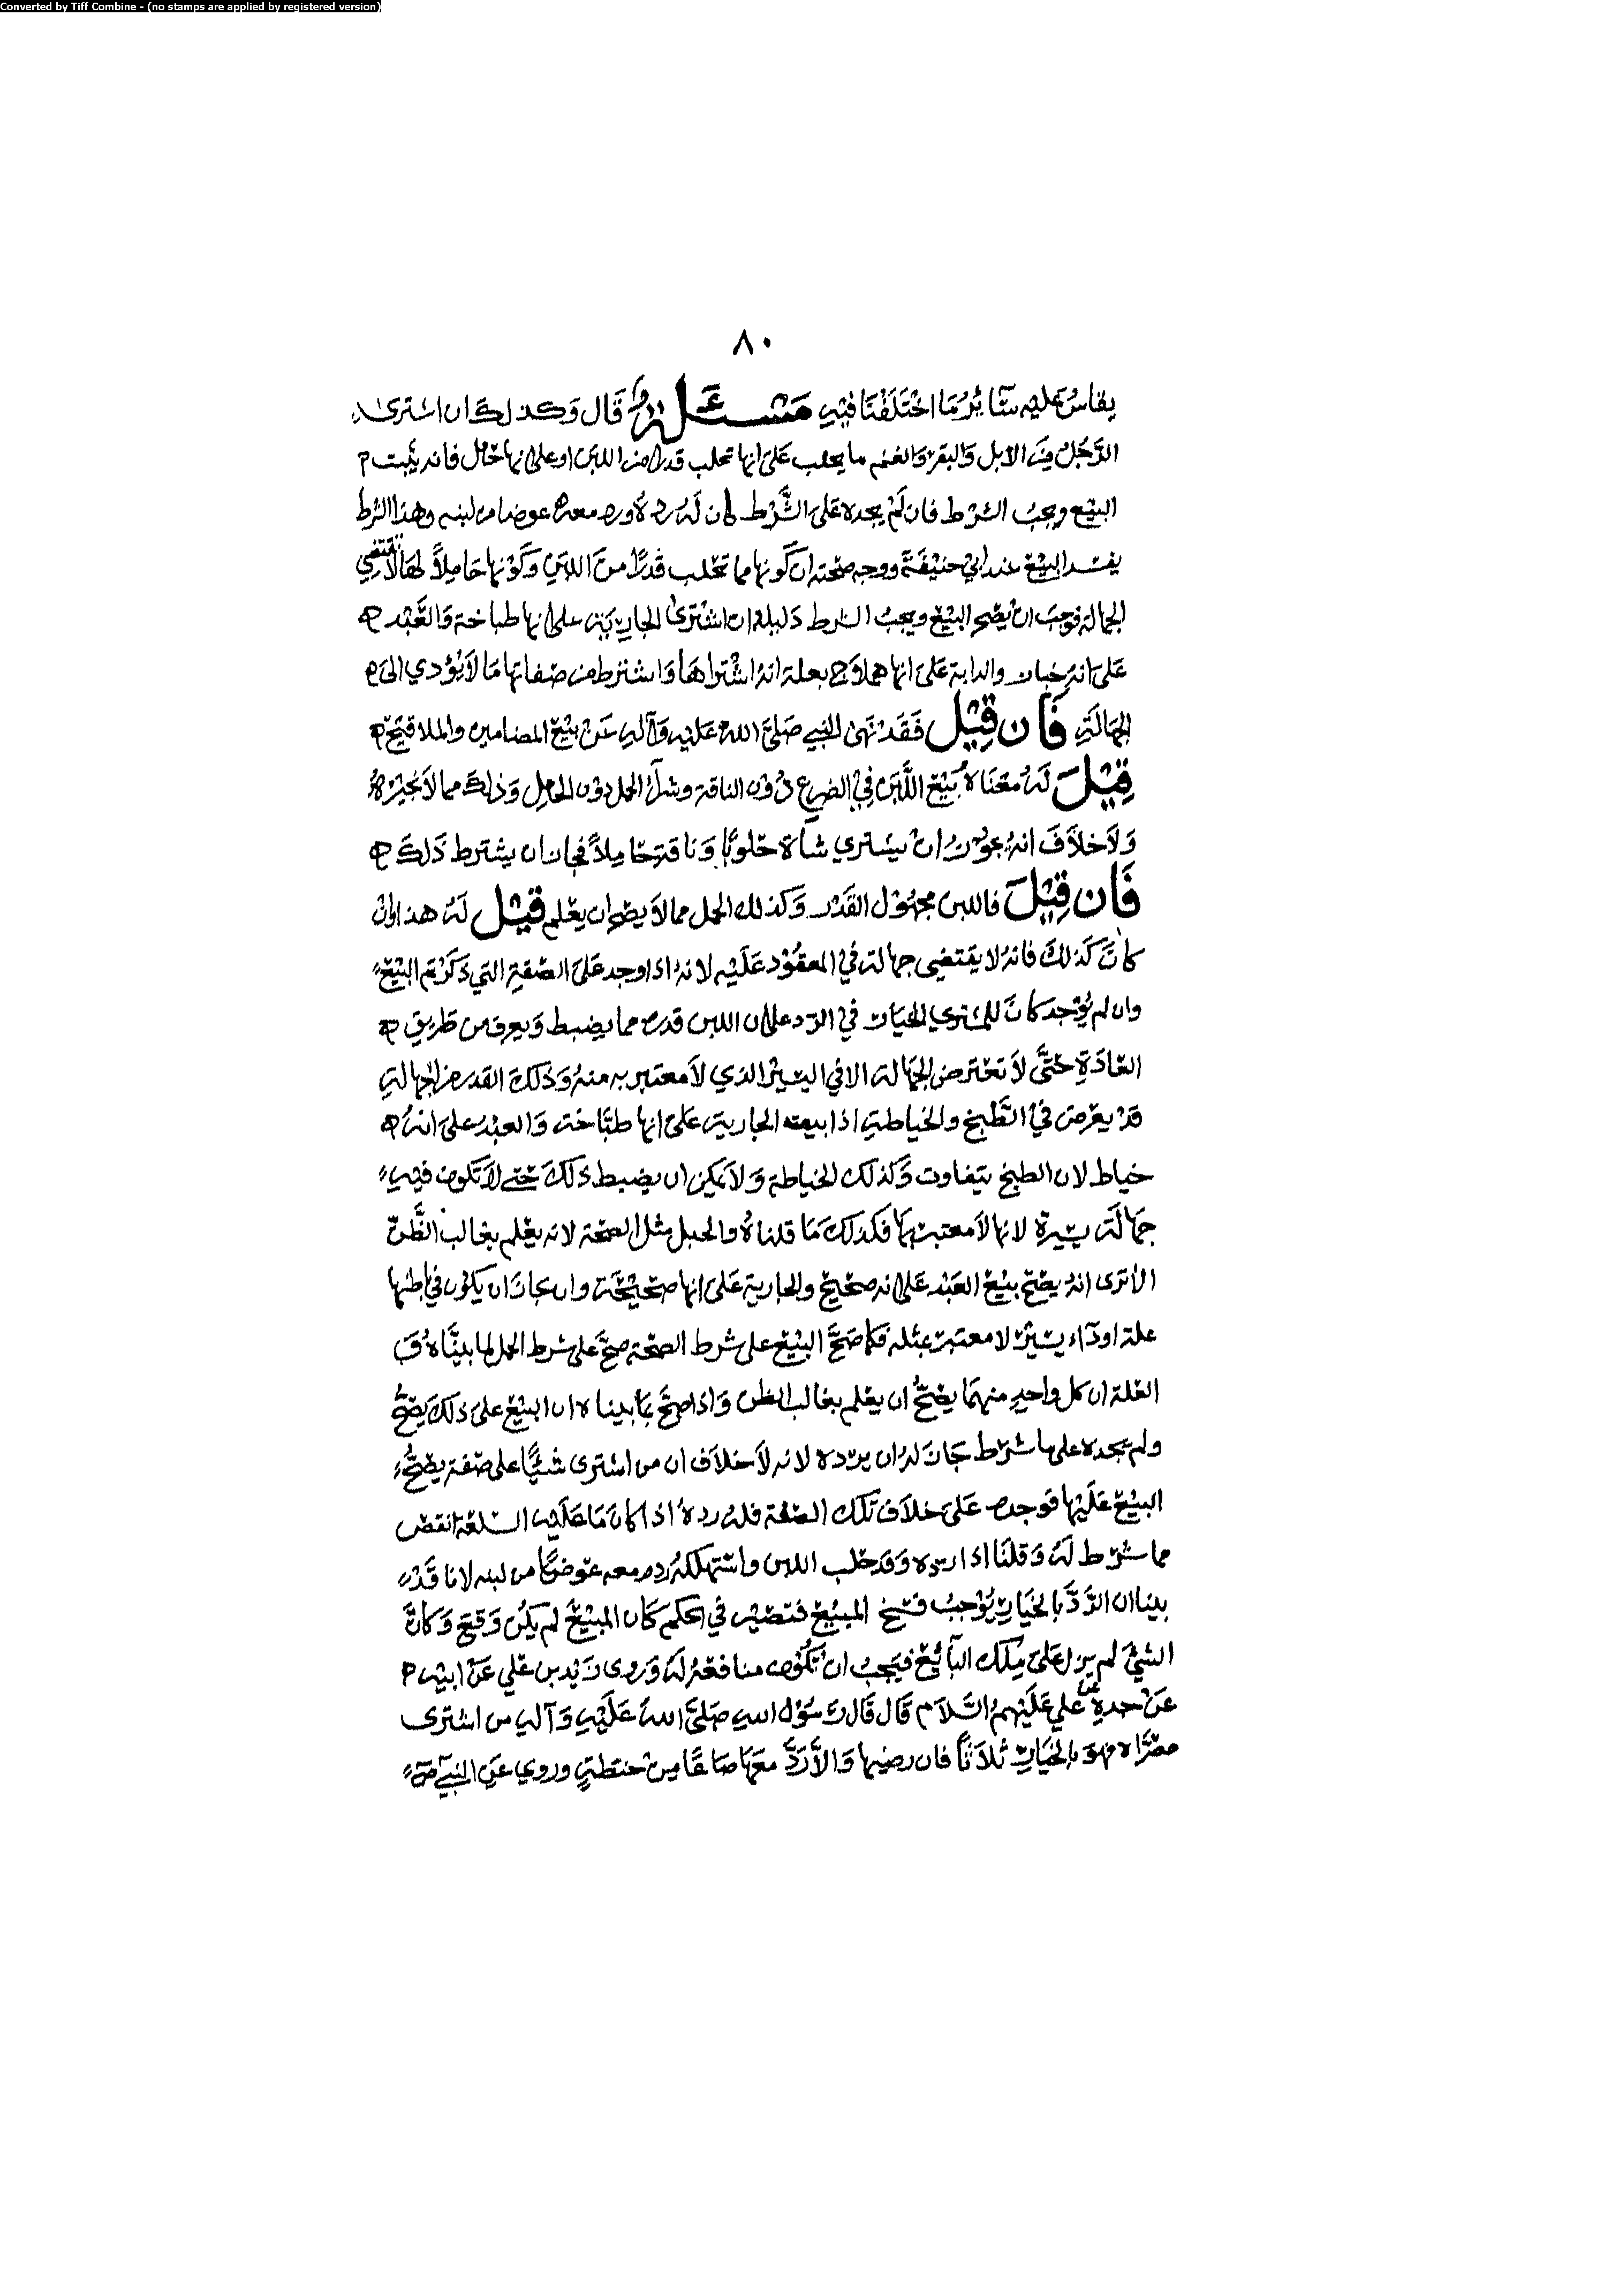 Converted by Tiff Combine - (no stamps are applied by registered version)
٨٠
يقاس عليه سَائرُ مَا اخْتَلَفْنَا فيْهِ مَسْئَلَة قَال وَكذلك ان اشترى
الرَّجُل مِنَ الابل وَالبقر وَالغنم ما يحلب عَلى انها تحلب قدرا من اللبن او على انها حَامل فانه يثبت
البيْع ويجبُ الشرط فان لَمْ يجده عَلى الشَّرْط كان لَهُ ردهُ ورد معهُ عوضا من لبنه وهذا الشرط
يفسد البيْع عند ابي حنيْفَة ووجه صحته ان كونها مما تحْلب قدْرًا منَ اللبن وَكَوْنها حَاملاً لهَا لا يقتضي
الجهالة فوجبَ انْ يصح البيْع ويجبُ الشرط دَليله ان اشْترىٰ الجاريَة على انها طباخة وَالعَبْد
عَلى انهُ خباز والدابة عَلى انها هملاج بعلة انهُ اشْتراهَا وَاشترط من صفاتها مَا لاَ يُؤدي الىَ
الجهَالَةِ فَان قِيْل فَقَدْ نَهى النبي صَلىَّ اللهُ عَليْهِ وَآلهِ عَنْ بيْع المضامين والملاقيْح
قِيْلَ لَهُ مَعْنَاهُ بَيْع اللَّبَن فِي الضرع دُوْن الناقة وشرآء الحمل دوْن الحامِل وَذلكَ مما لاَ نجيْزهُ
وَلاَ خلاَفَ انهُ يجوْزُ انْ يشتري شاَة حَلوْبًا وَناقةً حَامِلاً فجاز ان يشترط ذَلكَ
فَان قِيْلَ فاللبن مجهُوْل القَدْر وَكذلك الحمل مما لاَ يصَح ان يعْلم قِيْل لَهُ هذا وانْ
كانَ كَذلكَ فانهُ لا يَقتضي جهالة في المعقوْد عَلَيْه لانهُ اذا وجد عَلى الصّفةِ التي ذكَرَ تم البيْع
وان لم يُوْجد كانَ للمشتري الخيَار في الردّ على ان اللبن قدره مما يضبط وَيعرف من طَريق
العَادَةِ حَتَّى لاَ تعْترض الجهَالة الا في اليسيْر الذي لاَ معتبر به منهُ وَذلكَ القدر من الجهالةِ
قدْ يعْرض في الطَّبخ والخياطةِ اذا بيعت الجاريَة عَلى انها طبَّاخة وَالعبْد على انهُ
خياط لان الطبخ يتفاوت وَكذلك الخياطة وَلاَ يمكِن ان يضبط ذلكَ حَتى لاَ تكون فيْه
جهَالَة يسيْرة لانها لاَ معتبر بهَا فكذلكَ مَا قلناهُ والحبل مثل الصحّة لانه يعْلم بغالب الظَّنّ
الاَ ترى انهُ يصحّ بيْع العَبْد عَلى انه صحيْح والجارية عَلى انها صَحيْحَة وان جازَ ان يكوْن في باطنها
علة او دآء يسيْر لا معتبر بمثله فكما صَحَّ البيْع على شرط الصحّة صحَّ على شرط الحمل لما بينَّاهُ وَ
العلة ان كل واحدٍ منهمَا يصحُّ ان يعْلم بغالب الظن وَاذا صحَّ بمَا بيناه ان البيْع على ذلكَ يصحُّ
ولم يجده على ما شرَط جَازَ لهُ ان يردّه لانه لاَ خلاَف ان من اشترى شيْئًا على صفة يصَحُّ
البيْع عَلَيْها فوجده عَلى خلاَف تلك الصفة فلهُ ردهُ اذا كانَ مَا عَلَيْه السّلعَة انقص
مما شرَط لَهُ وَقلنَا اذا ردّه وَقد حَلب اللبن واسْتهلكهُ رد معه عوَضًا من لبنه لانا قَدْ
بينا ان الرَّدَّ بالخيَار يُوْجبُ فسْخ المبيْع فتصيْر في الحكم كَان المبيْعَ لم يكن وَقعَ وَكانَّ
الشيْ لم يزل عَلى مِلك البآئع فيَجبُ انْ تكُوْن منافعهُ لهُ وَروى زيْد بن علي عَنْ ابيْه
عَنْ جدهِ عن علي عَلَيْهمُ السَّلاَم قَال قَال رَسُوْل اللهِ صَلىَّ اللهُ عَلَيْهِ وَآلهِ من اشترى
مصرَّاه فهوَ بالخيَارِ ثلاَثاً فان رضيها وَالاَّ ردَّ معهَا صَاعًا مِنْ حنطةٍ وروي عَنِ النبيّ صَ